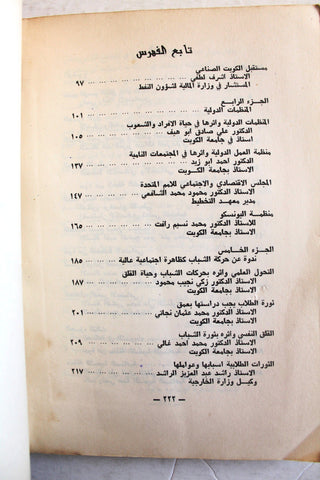 تابع الفهرس
مستقبل الكويت الصناعي
الاستاذ اشرف لطفي ٩٧
المستشار في وزارة المالية لشؤون النفط
الجزء الرابع
المنظمات الدولية ١٠١
المنظمات الدولية واثرها في حياة الافراد والشعوب
الدكتور علي صادق ابو هيف ١٠٥
استاذ في جامعة الكويت
منظمة العمل الدولية واثرها في المجتمعات النامية
الدكتور احمد ابو زيد ١٣٧
الاستاذ بجامعة الكويت
المجلس الاقتصادي والاجتماعي للامم المتحدة
الاستاذ الدكتور محمود محمد الشافعي ١٤٧
مدير معهد التخطيط
منظمة اليونسكو
للاستاذ الدكتور محمد نسيم رافت ١٦٥
الاستاذ بجامعة الكويت
الجزء الخامس
ندوة عن حركة الشباب كظاهرة اجتماعية عالية ١٨٥
التحول العلمي واثره بحركات الشباب وحياة القلق
الاستاذ الدكتور زكي نجيب محمود ١٨٧
الاستاذ بجامعة الكويت
ثورة الطلاب يجب دراستها بعمق
الاستاذ الدكتور محمد عثمان نجاتي ٢٠١
الاستاذ بجامعة الكويت
القلق النفسي واثره بثورة الشباب
الاستاذ الدكتور محمد احمد غالي ٢٠٩
الاستاذ بجامعة الكويت
الثورات الطلابية اسبابها وعواملها
الاستاذ راشد عبد العزيز الراشد ٢١٧
وكيل وزارة الخارجية
— ٢٢٢ —